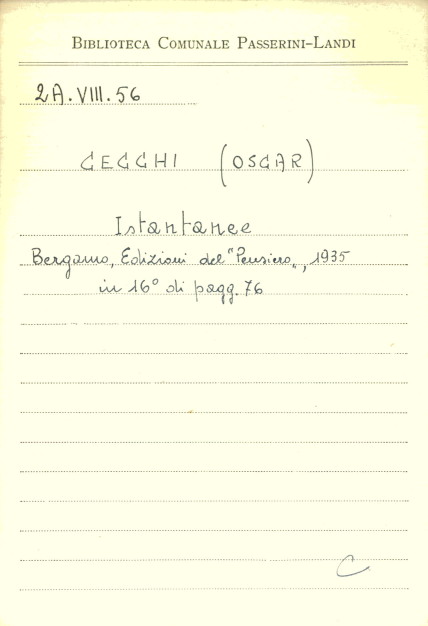 BIBLIOTECA COMUNALE PASSERINI-LANDI
2A.VIII.56
CECCHI (OSCAR)
Istantanee
Bergamo, Edizioni del "Pensiero", 1935
in 16° di pagg. 76
C